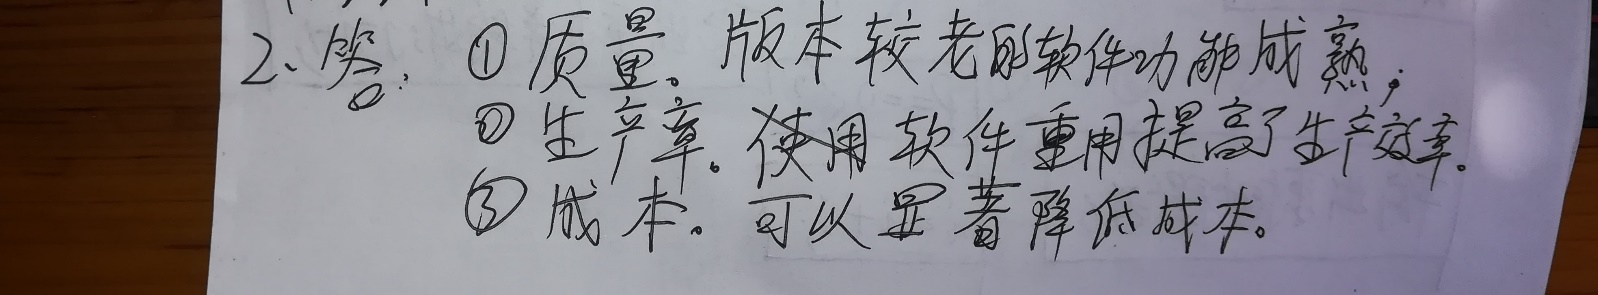 2、答: ①质量。版本较老的软件功能成熟;
②生产率。使用软件重用提高了生产效率。
③成本。可以显著降低成本。